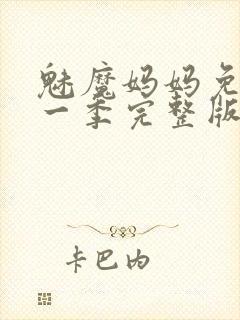 魅魔妈妈免
一季完整版
卡巴内